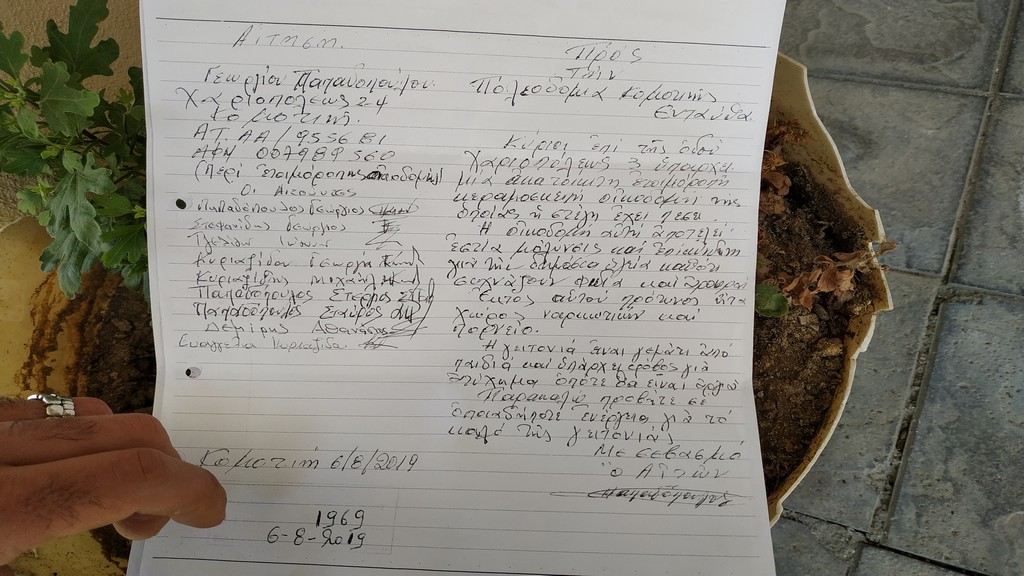 Αιτηση.
Γεωργίου Παπαδοπούλου.
Χαριοπόλεως 24
Κομοτηνή.
ΑΤ. ΑΑ/955681
ΑΦΜ 007989560
(Περί Ετοιμόροπης οικοδομής)
Οι Αιτούντες
Παπαδόπουλος Γεώργιος
Στεφανίδης Γεώργιος
Κυριαζίδου Γεωργία
Κυριαζίδης Μιχαήλ
Παπαδόπουλος Στέργιος
Παπαδόπουλος Σταύρος
Δεμίρης Αθανάσιος
Ευαγγελία Κυριαζίδου
Κομοτινή 6/8/2019
1969
6-8-2019
Πρός
Την
Πολεοδομία Κομοτηνής
Ενταύθα
Κύριοι επί της οδού
Χαριοπόλεως 3 υπάρχει
μία ακατοίκητη ετοιμόροπη
κεραμοσκεπή οικοδομή της
οποίας η στέγη έχει πέσει.
Η οικοδομή αυτή αποτελεί
εστία μολύνσεις και επικίνδυνη
για την δημόσια υγεία καθότι
συχνάζουν φίδια και
Εκτός αυτού πρόκειται για
χώρος ναρκωτικών και
πορνείο.
Η γειτονιά είναι γεμάτη από
παιδιά και υπάρχει φόβος για
ατύχημα οπότε θα είναι αργά
Παρακαλώ προβείτε σε
οποιαδήποτε ενέργεια για το
καλό της γειτονιάς
Με σεβασμό
ο Αιτών